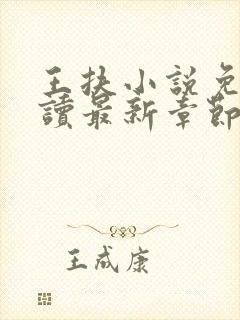 王扶小說免
讀最新章節
王成康